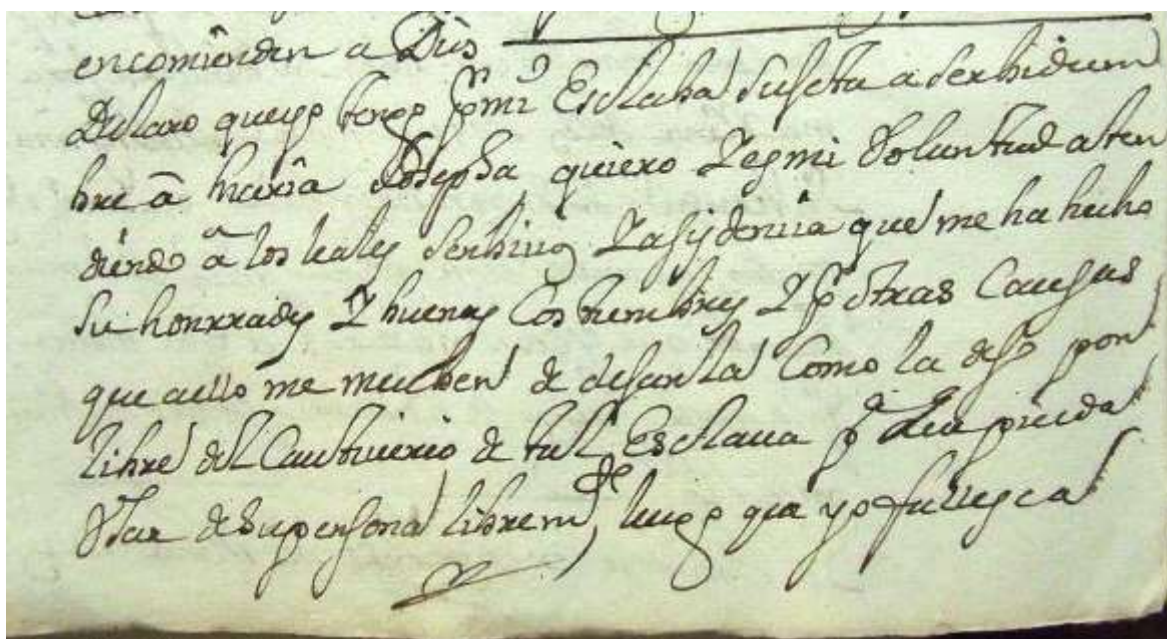 encomienden a Dios
Declaro que yo tengo p.r mi Esclaba sujeta a serbidum
bre â maria Josepha quiero Y es mi Voluntad aten
diendo â los leales serbicios Y asistencia que me ha hecho
su honrrades Y buenas Costumbres Y p.r otras Causas
que a ello me mueben de dejarla Como la dejo por
libre del Cautiverio de tal Esclava p.a que pueda
Vsar de su persona librem.te luego que yo fallesca